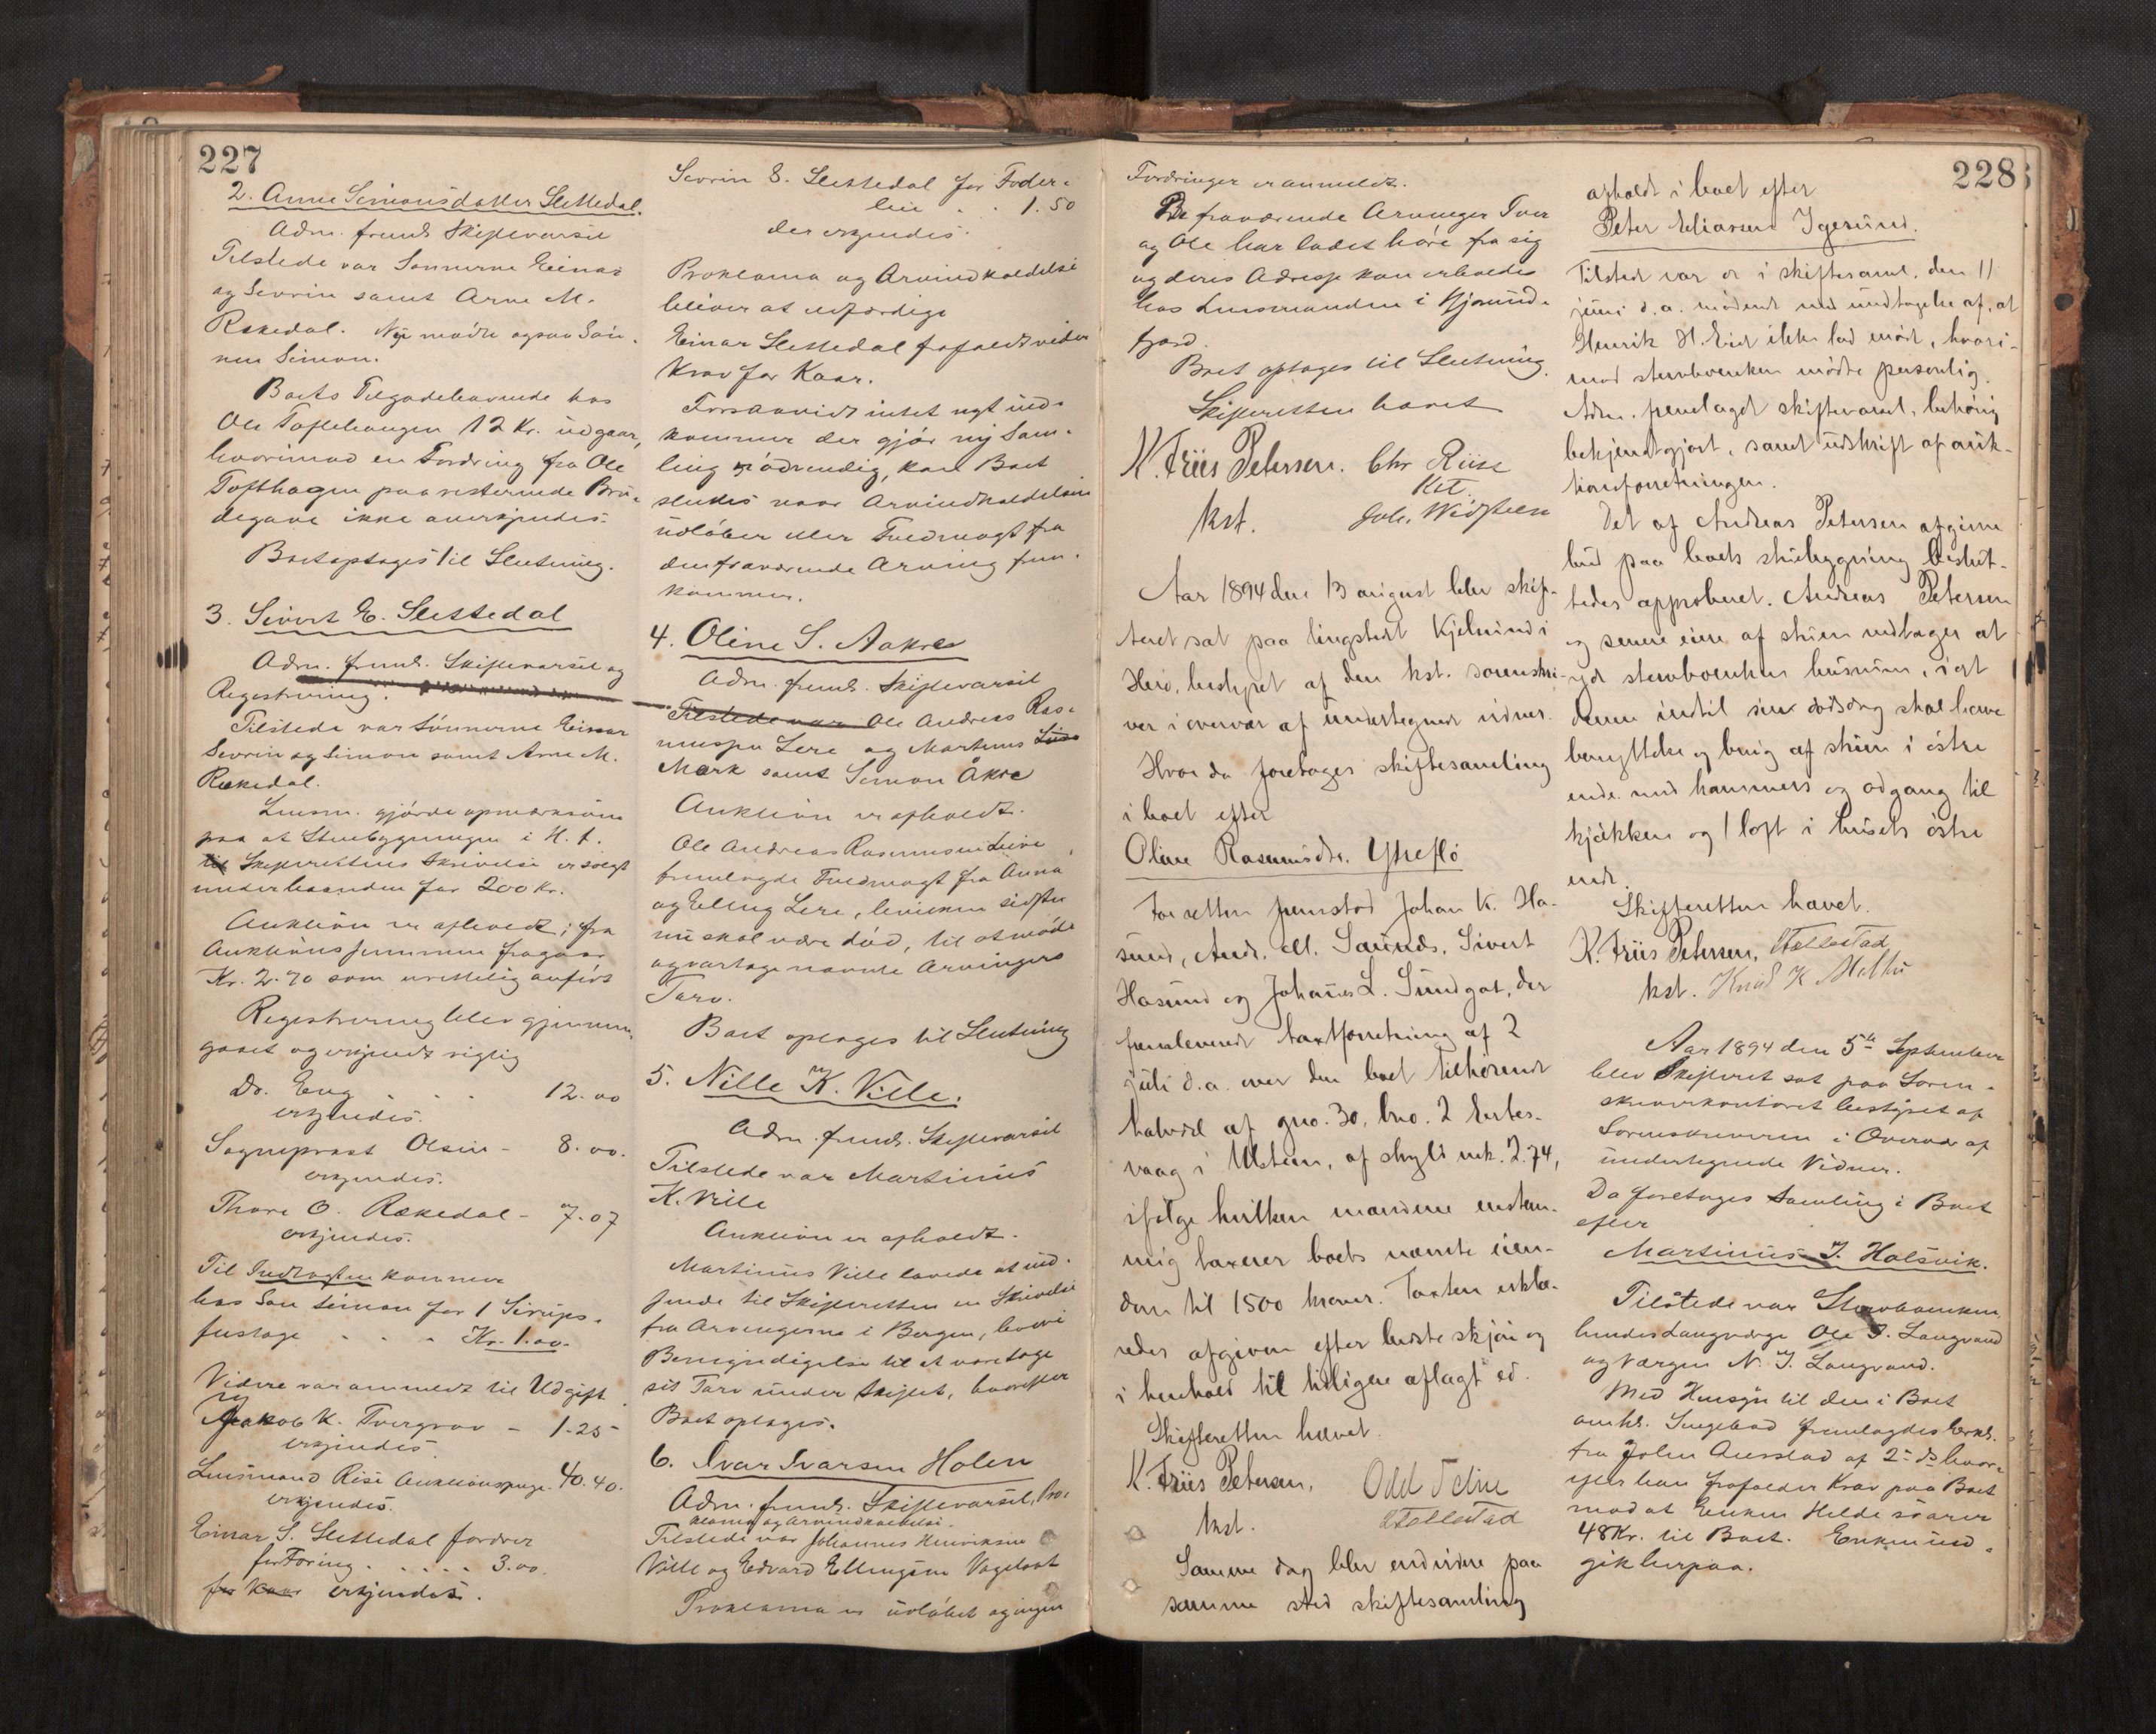 227
2. Anne Simonsdatter Slettedal.
Adm. freml. Skiftevarsel
Tilstede var Sønnerne Einar
og Sevrin samt Arne M.
Rekedal. Nu mødte ogsaa Søn-
nen Simon.
Boets Tilgodehavende hos
Ole Tofthaugen 12 Kr. udgaar,
hvorimod en Fordring fra Ole
Tofthagen paa resterende Bru-
degave ikke anerkjendes.
Boet optages til Slutning.
3. Sivert E. Slettedal
Adm. freml. Skiftevarsel og
Registrering.
Tilstede var Sønnerne Einar
Sevrin og Simon samt Arne M.
Rekedal.
Lensm. gjorde opmærksom
paa at Stuebygningen i H. t.
til Skifterettens Skrivelse er solgt
underhaanden for 200 Kr.
Auktion er afholdt; fra
Auktionssummen fragaar
Kr. 2.70 som urettelig anført
Registrering blev gjennem-
gaaet og erkjendt rigtig
Dr. Eng . . . 12.00
erkjendes.
Sogneprest Olsen - 8.00.
erkjendes.
Thore O. Rekedal - 7.07
erkjendes.
Til Indtægten kommer
hos Søn Simon for 1 Sirups-
fustage . . . Kr. 1.00.
Videre var anmeldt til Udgift
Jakob K. Tvergrov - 1.25
erkjendes
Lensmand Riise Auktionspenge. 40.40.
erkjendes.
Einar S. Slettedal fordrer
for Foring . . . . . 3.00.
for Kaar erkjendes.
Sevrin S. Slettedal for Foder-
leie . . 1.50
der erkjendes.
Proklama og Arveindkaldelse
bliver at udfærdige
Einar Slettedal frafaldt videre
Krav for Kaar.
Forsaavidt intet nyt ind-
kommer der gjør ny Sam-
ling nødvendig, kan Boet
sluttes naar Arveindkaldelsen
udløber eller Fuldmagt fra
den fraværende Arving frem-
kommer.
4. Oline S. Aakre
Adm. freml. Skiftevarsel
Tilstede var Ole Andreas Ras-
mussen Lere og Martinus
Mork samt Simon Åkre
Auktion er afholdt.
Ole Andreas Rasmussen Leire
fremlagde Fuldmagt fra Anna
og Elling Lere, hvilken sidste
nu skal være død, til at møde
og vartage nævnte Arvingers
Tarv.
Boet optages til Slutning
5. Nille K. Velle.
Adm. freml. Skiftevarsel
Tilstede var Martinus
K. Velle
Auktion er afholdt.
Martinus Velle lovede at ind-
sende til Skifteretten en Skrivelse
fra Arvingerne i Bergen, hvori
Bemyndigelse til at varetage
sit Tarv under Skiftet, hvorefter
Boet optages.
6. Ivar Ivarsen Holen
Adm. freml. Skiftevarsel, Pro-
klama og Arveindkaldelse.
Tilstede var Johannes Henriksen
Velle og Edvard Ellingsen
Proklama er udløbet og ingen
228
Fordringer er anmeldt.
De fraværende Arvinger Iver
og Ole har ladet høre fra sig
og deres Adresse kan erholdes
hos Lensmanden i Hjørund-
fjord.
Boet optages til Slutning.
Skifteretten hævet
K. Friis Petersen. Chr Riise
kst. Kst.
Joh. Widsteen
Aar 1894 den 13 august blev skif-
teret sat paa tingstedet Kjelsund i
Herø, bestyret af den kst. sorenskri-
ver i overvær af undertegnede vidner.
Hvor da foretoges skiftesamling
i boet efter
Oline Rasmusdtr. Ytreflø
For retten fremstod Johan K. Ha-
sund, Andr. M. Saunds, Sivert
Hasund og Johannes L. Sundgot, der
fremleverede taxtforretning af 2
juli d.a. over den boet tilhørende
halvdel af gno. 30, bno. 2 Eites-
vaag i Ulstein, af skyld mk. 2.74,
ifølge hvilken mændene enstem-
mig taxerer boets nævnte eien-
dom til 1500 kroner. Taxten erklæ-
redes afgiven efter bedste skjøn og
i henhold til tidligere aflagt ed.
Skifteretten hævet.
K. Friis Petersen, Odd
kst.
Samme dag blev endvidere paa
samme sted skiftesamling
afholdt i boet efter
Peter Eliassen Igesund.
Tilstede var de i skiftesaml. den 11
juni d.a. mødende med undtagelse af, at
Henrik H. Eid ikke lod møde, hvori-
mod sterboenken mødte personlig.
Adm. fremlagde skiftevarsel, behørig
bekjendtgjort, samt udskrift af auk-
tionsforretningen.
Det af Andreas Petersen afgivne
bud paa boets stuebygning beslut-
tedes approberet. Andreas Petersen
og senere eiere af stuen vedtager at
yde sterboenken husrum, idet
denne indtil sin dødsdag skal have
benyttelse og brug af stuen i østre
ende med kammers og adgang til
kjøkken og 1 loft i husets østre
ende.
Skifteretten hævet.
K. Friis Petersen,
kst. Knud K
Aar 1894 den 5te September
blev Skifteret sat paa Soren-
skriverkontoret bestyret af
Sorenskriveren i Overvær af
undertegnede Vidner.
Da foretoges Samling i Boet
efter
Martinus J. Halsvik.
Tilstede var Sterboenken
hendes Laugværge Ole J. Langvand
og Værgen N. J. Langvand.
Med Hensyn til den i Boet
omhl. fremlagdes Erkl.
fra John Aurstad af 2 ds hvor-
efter han frafalder Krav paa Boet
mod at Enken Helde svarer
48 Kr. til Boet. Enken ind-
gik herpaa.